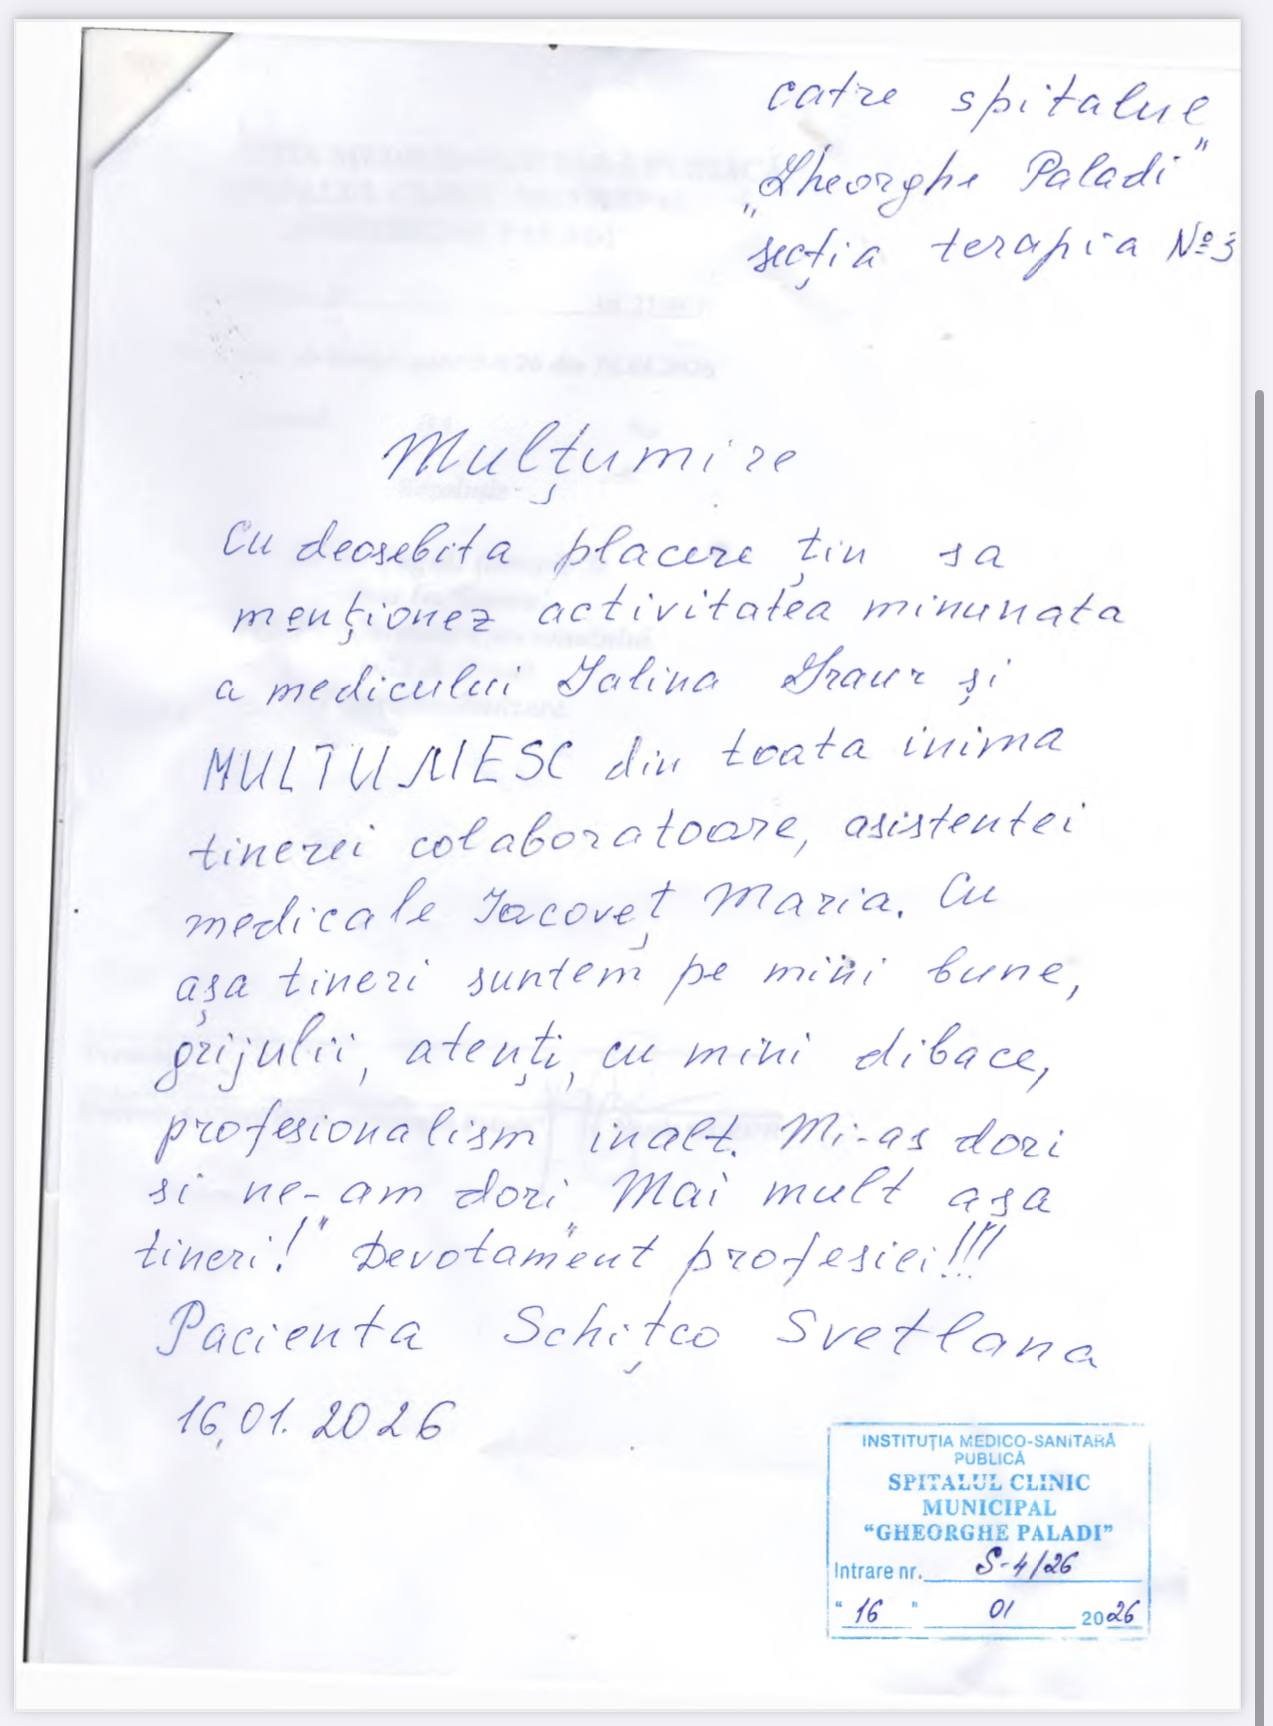 catre spitalul
„Gheorghe Paladi"
secția terapia № 3
Mulțumire
Cu deosebita placere țin sa
menționez activitatea minunata
a medicului Galina Graur și
MULTUMESC din toata inima
tinerei colaboratoare, asistentei
medicale Iacoveț Maria. Cu
așa tineri suntem pe mini bune,
grijulii, atenți, cu mini dibace,
profesionalism inalt. Mi-as dori
si ne-am dori „Mai mult așa
tineri!" Devotament profesiei!!!
Pacienta Schițco Svetlana
16.01.2026
INSTITUȚIA MEDICO-SANITARĂ
PUBLICĂ
SPITALUL CLINIC
MUNICIPAL
"GHEORGHE PALADI"
Intrare nr. S-4/26
"16" 01 2026